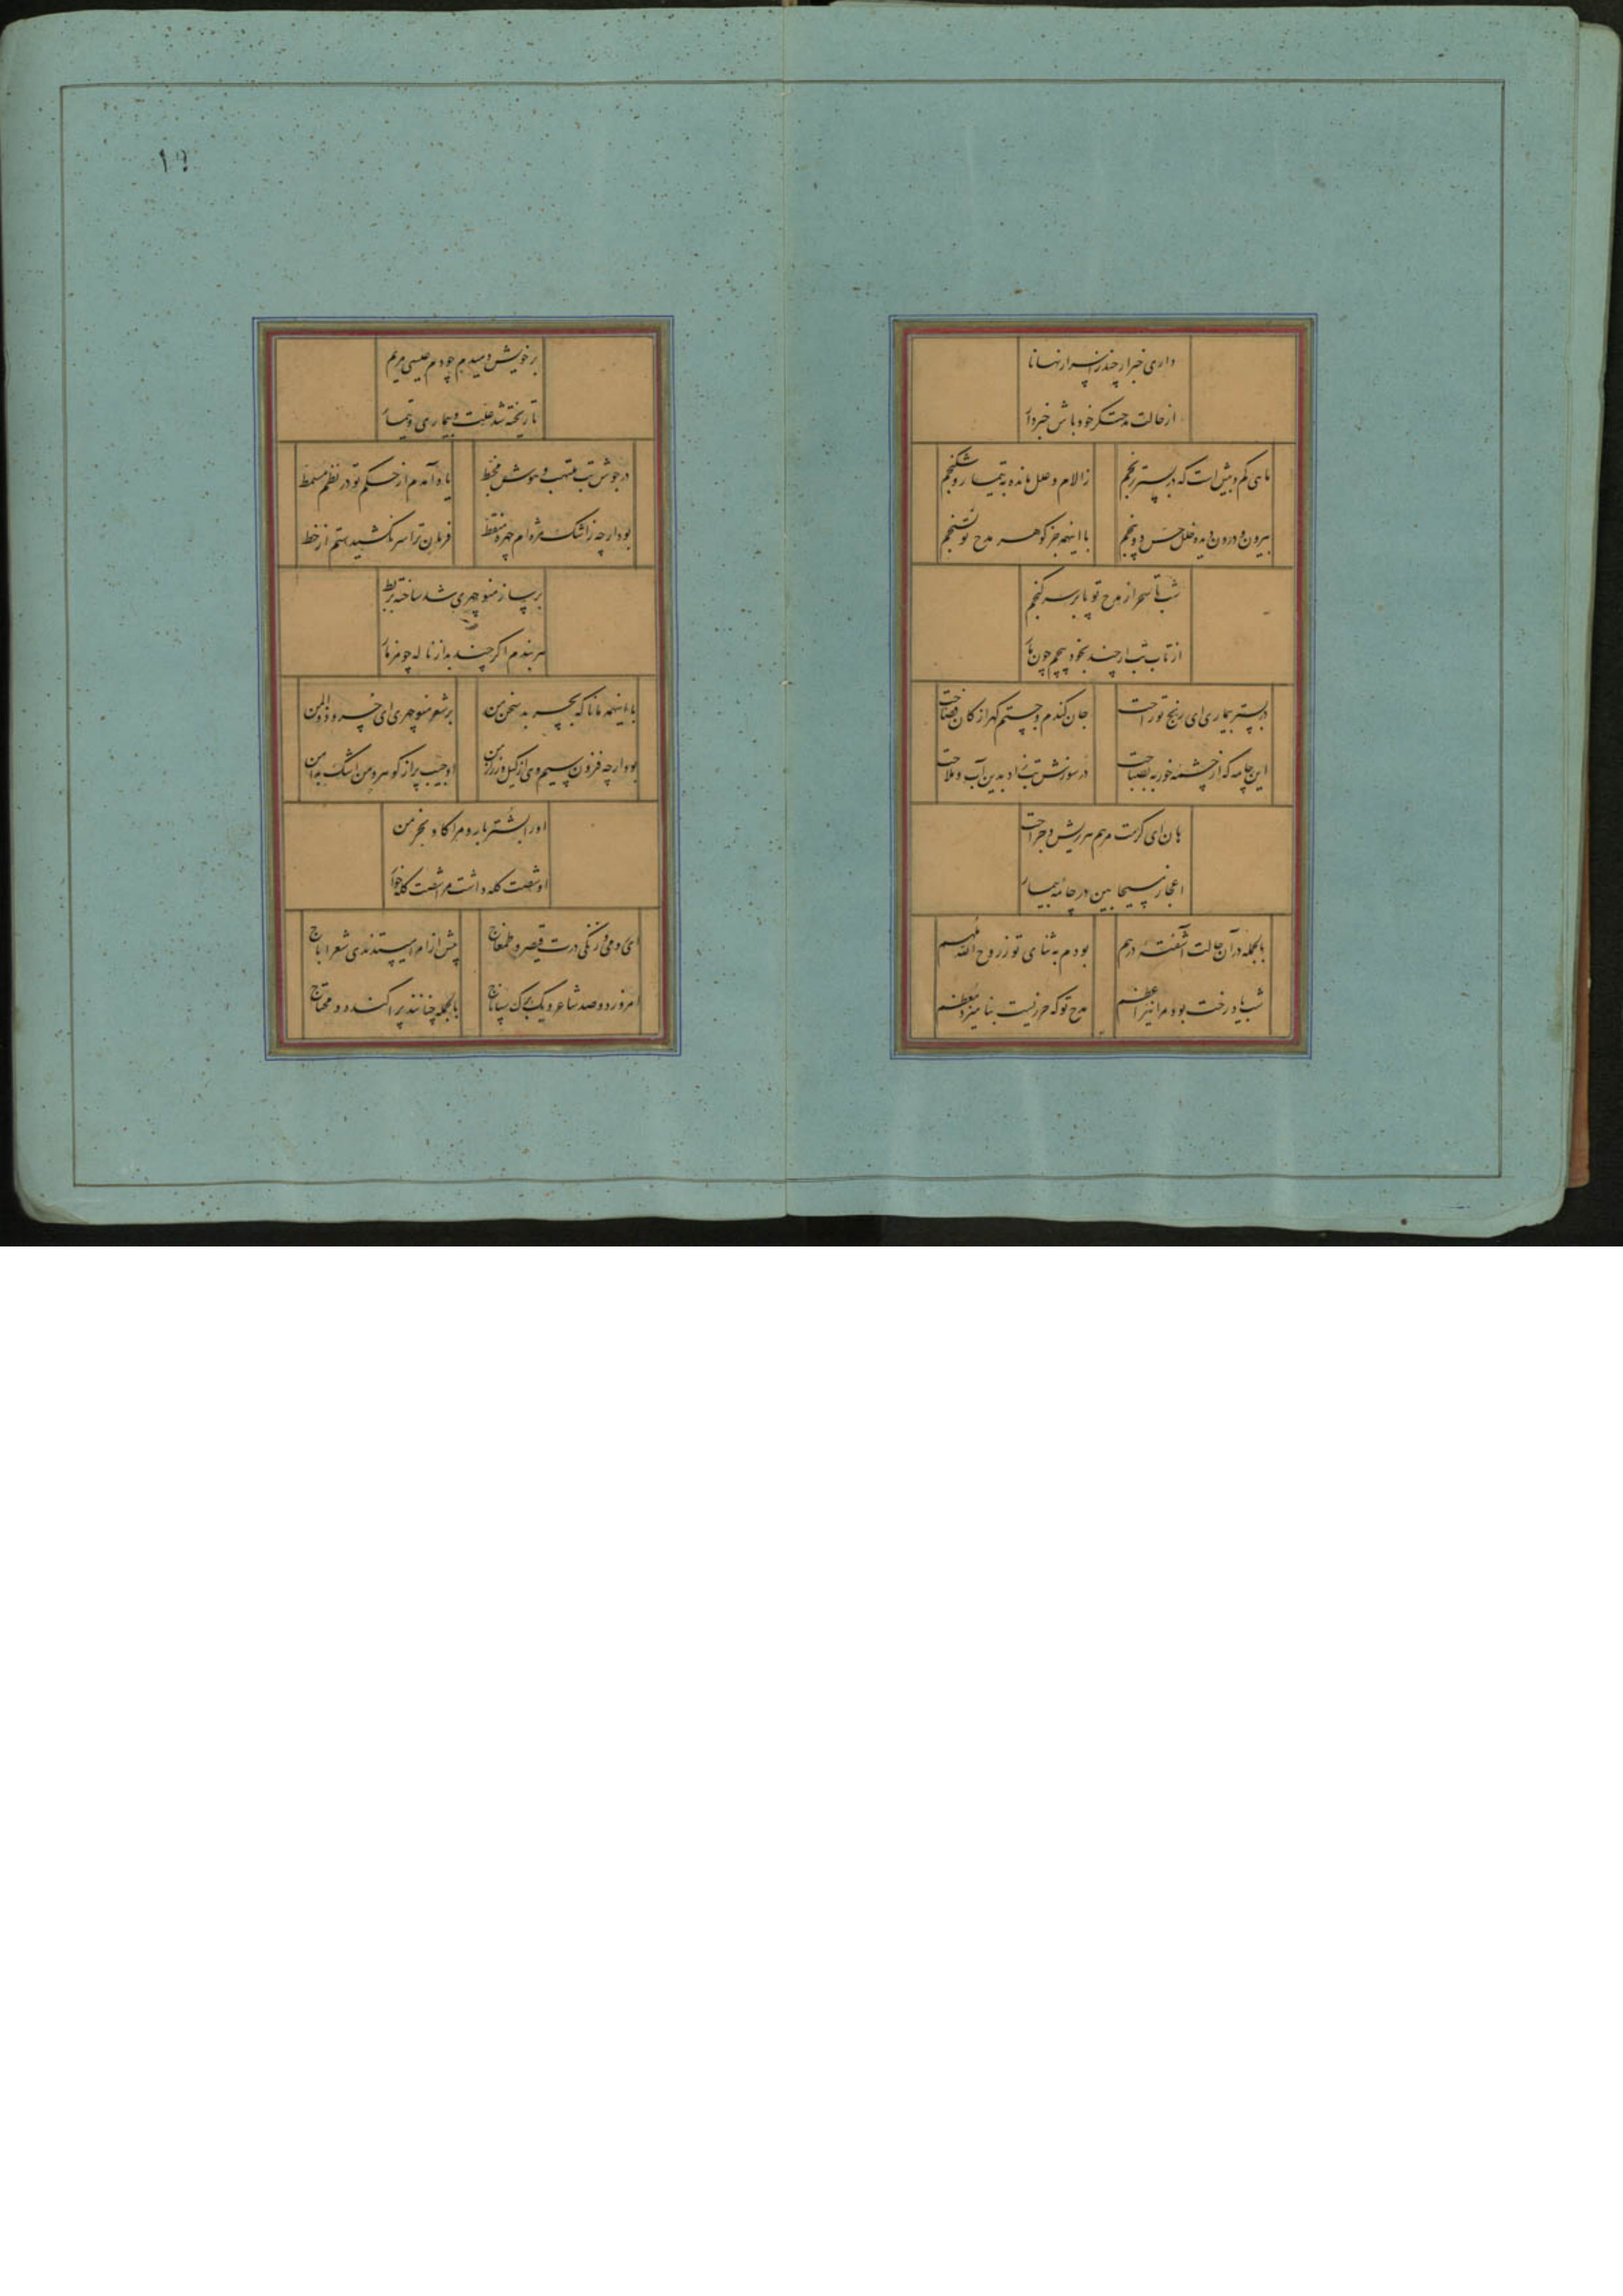 داری خبر ار چند ز اسرار نهانا
از حالت مدحتگر خود باش خبردار
ماهی کم و بیش است که در بستر رنجم
ز الام و علل مانده به تیمار و شکنجم
بیرون و درون دیده خلل حس و پنجم
با اینهمه جز گوهر مدح تو نسنجم
شب تا سحر از مدح تو یا بر سر گنجم
از تاب تب ار چند بخود پیچم چون مار
در بستر بیماری ای رنج تو راحت
جان کندم و جستم گهر از کان فصاحت
این چامه که از چشمه خور به بصباحت
در سوزش تب زاد بدین آب و ملاحت
هان ای کرمت مرهم هر ریش و جراحت
اعجاز مسیحا بین در چامه بیمار
بالجمله در آن حالت آشفته درهم
بودم به ثنای تو ز روح الله ملهم
شبها درخت بود مرا نیر اعظم
مدح تو که حرزیست بنامیزد معظم
۱۹
بر خویش دمیدم چو دم عیسی مریم
تا ریخته شد علت و بیماری و تیمار
در جوش تب ملتهب و هوش مخبط
یاد آمدم از حکم تو در نظم مسمط
بود ار چه ز اشک مژه ام چهره منقط
فرمان ترا سر نکشیدستم از خط
بر ساز منوچهری شد ساخته بربط
هر بندم اگر چند بد از ناله چو مزمار
با اینهمه مانا که بچربد سخن من
بر شعر منوچهری ای خسرو ذوالمن
بود ار چه فزون سیم وی از کیل و زر از من
او جیب پر از گوهر و من اشک بدامن
او را بشتر بار و مرا گاو بخرمن
او شصت گله داشت مرا شصت گله خوار
ای رومی و زنگی درت قیصر و طمغاج
پیش از امرا بستدندی شعرا باج
امروز دو صد شاعر و یک برگ سپاناج
بالجمله چنانند پراکنده و محتاج